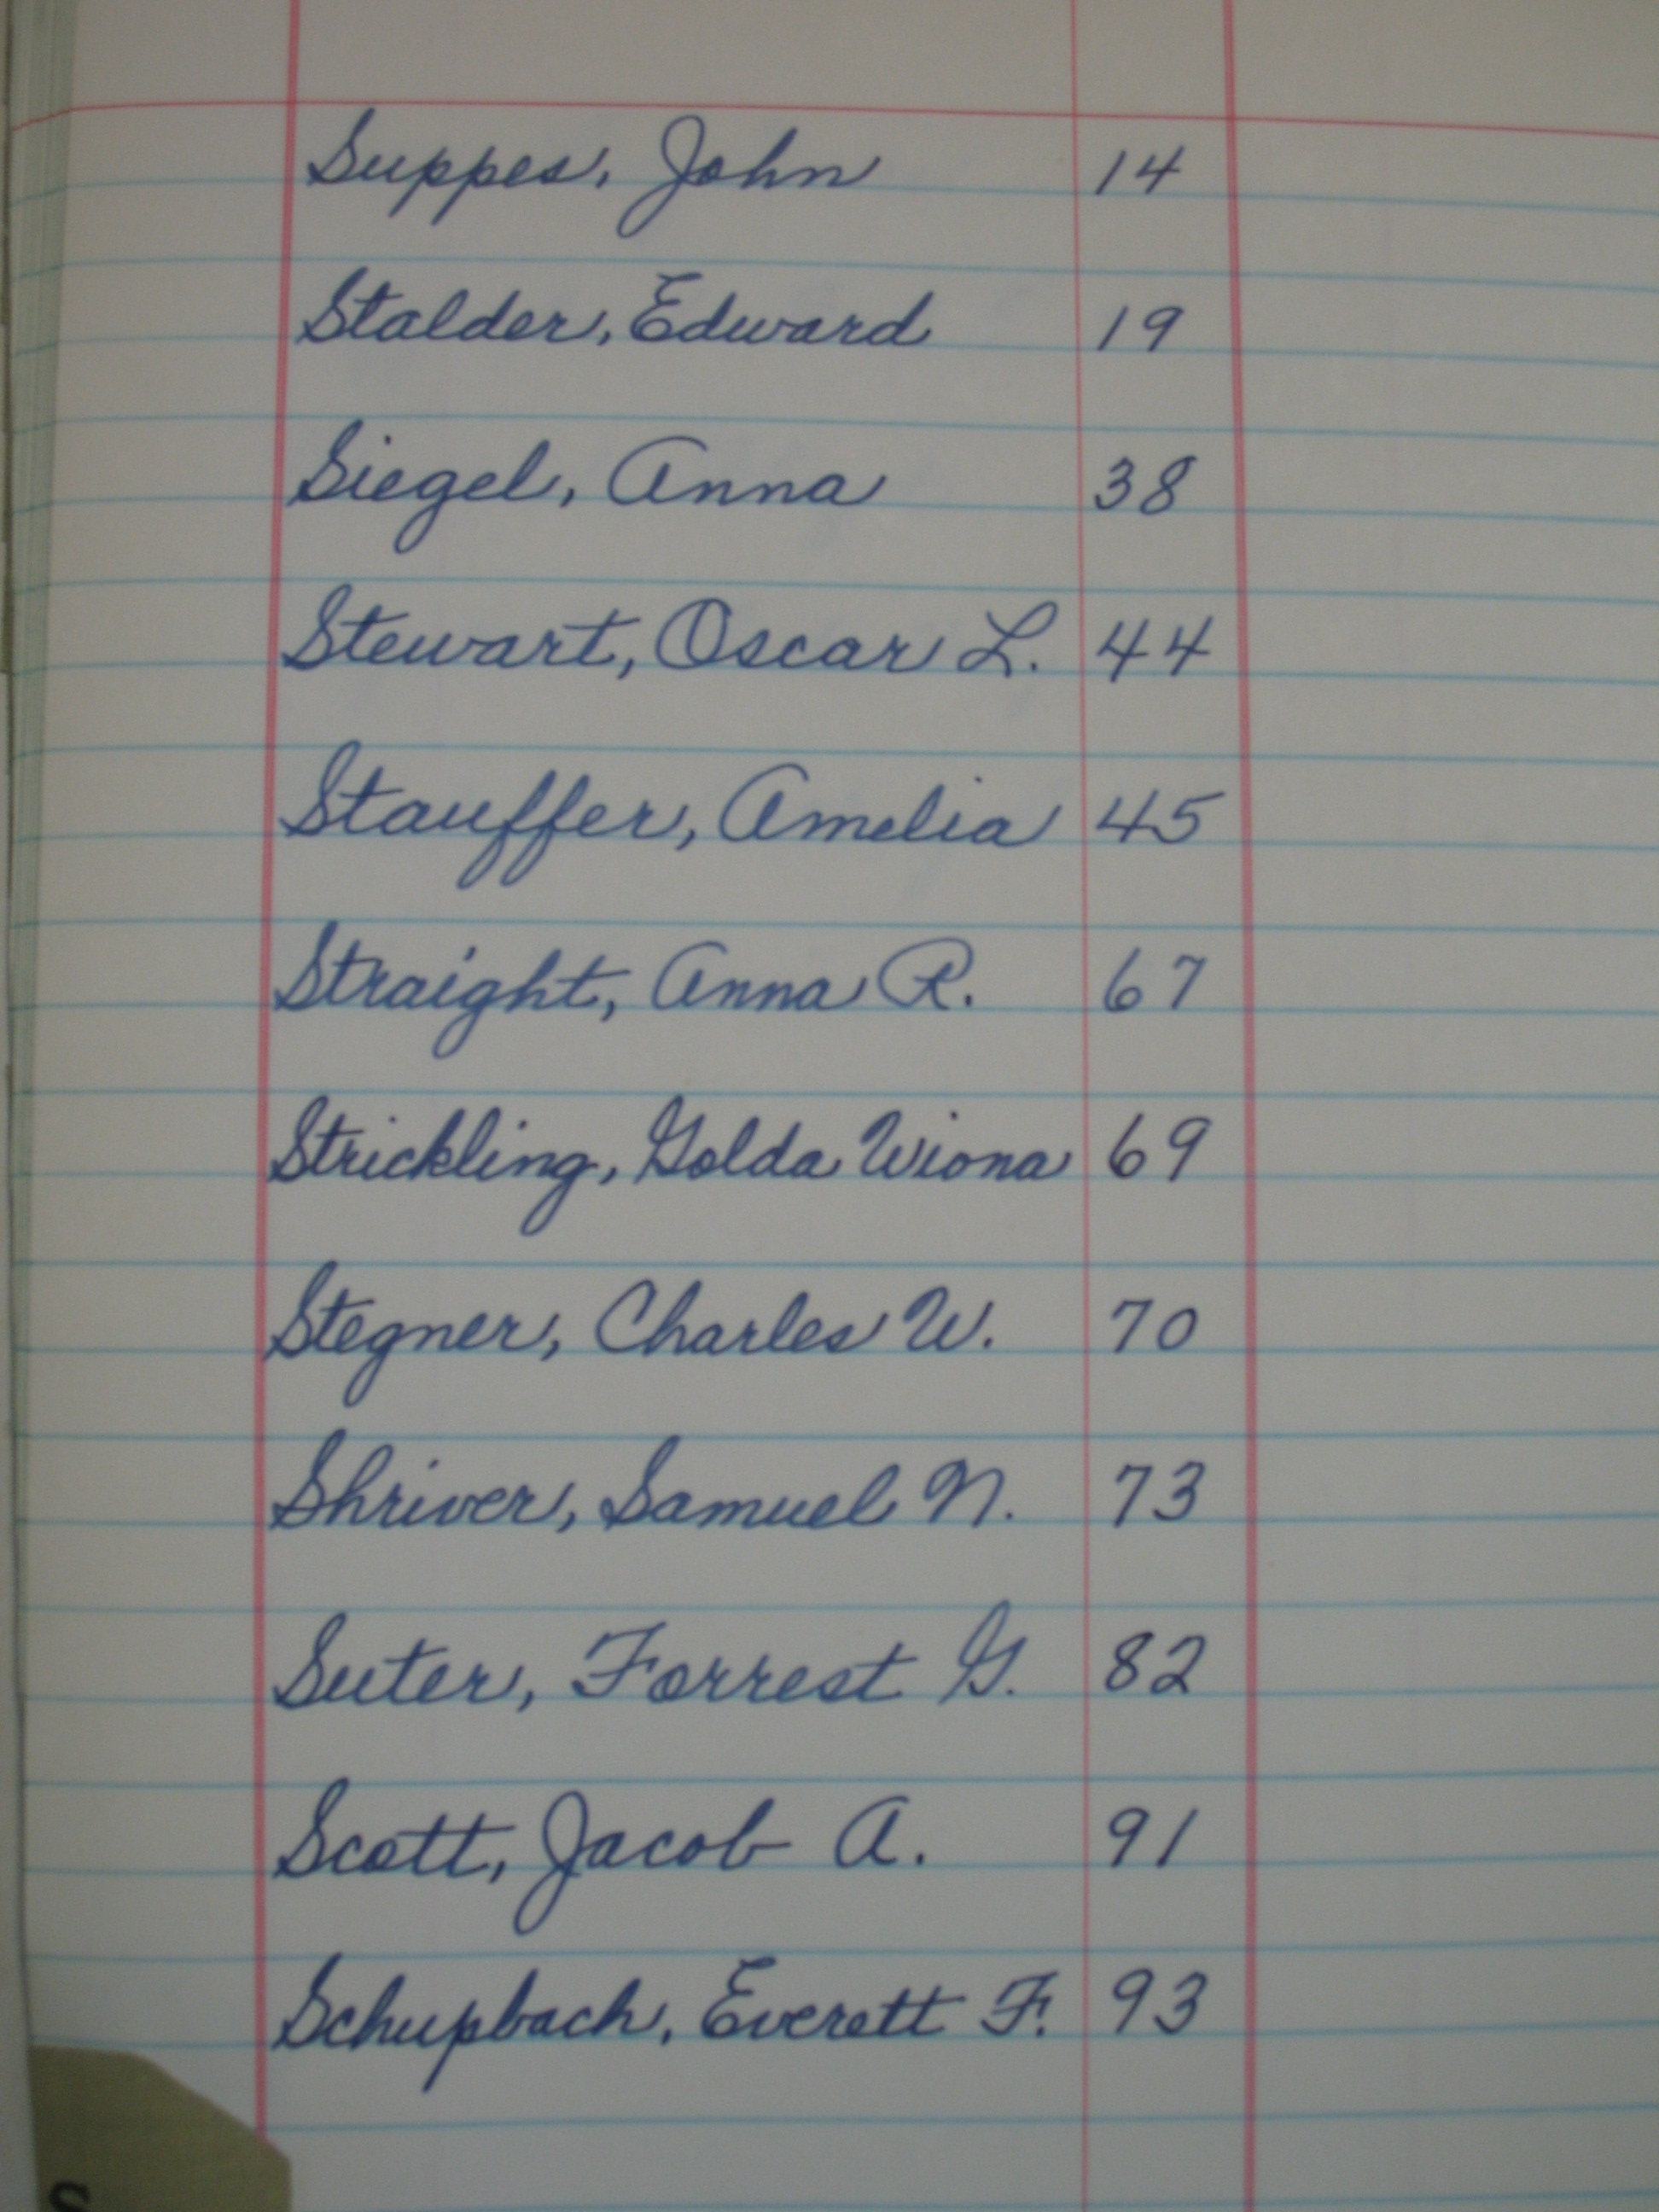 Suppes, John 14
Stalder, Edward 19
Siegel, Anna 38
Stewart, Oscar L. 44
Stauffer, Amelia 45
Straight, Anna R. 67
Strickling, Golda Wiona 69
Stegner, Charles W. 70
Shriver, Samuel N. 73
Suter, Forrest G. 82
Scott, Jacob A. 91
Schupbach, Everett F. 93
S